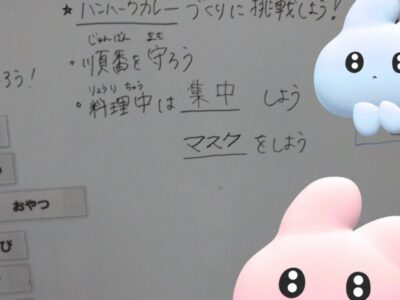 ★ハンバーグカレーづくりに挑戦しよう!
じゅんばん まも
・順番を守ろう
りょうり ちゅう
・料理中は 集中 しよう
マスク をしよう
ろう!
おやつ
び